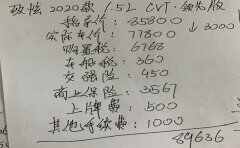 2020款 1.5L CVT·领先版
指导价: 85800
实际车价: 77800 ↓8000
购置税: 6768
车船税: 360
交强险: 450
商上保险: 3567
上牌费: 500
其他手续费: 1000
89636